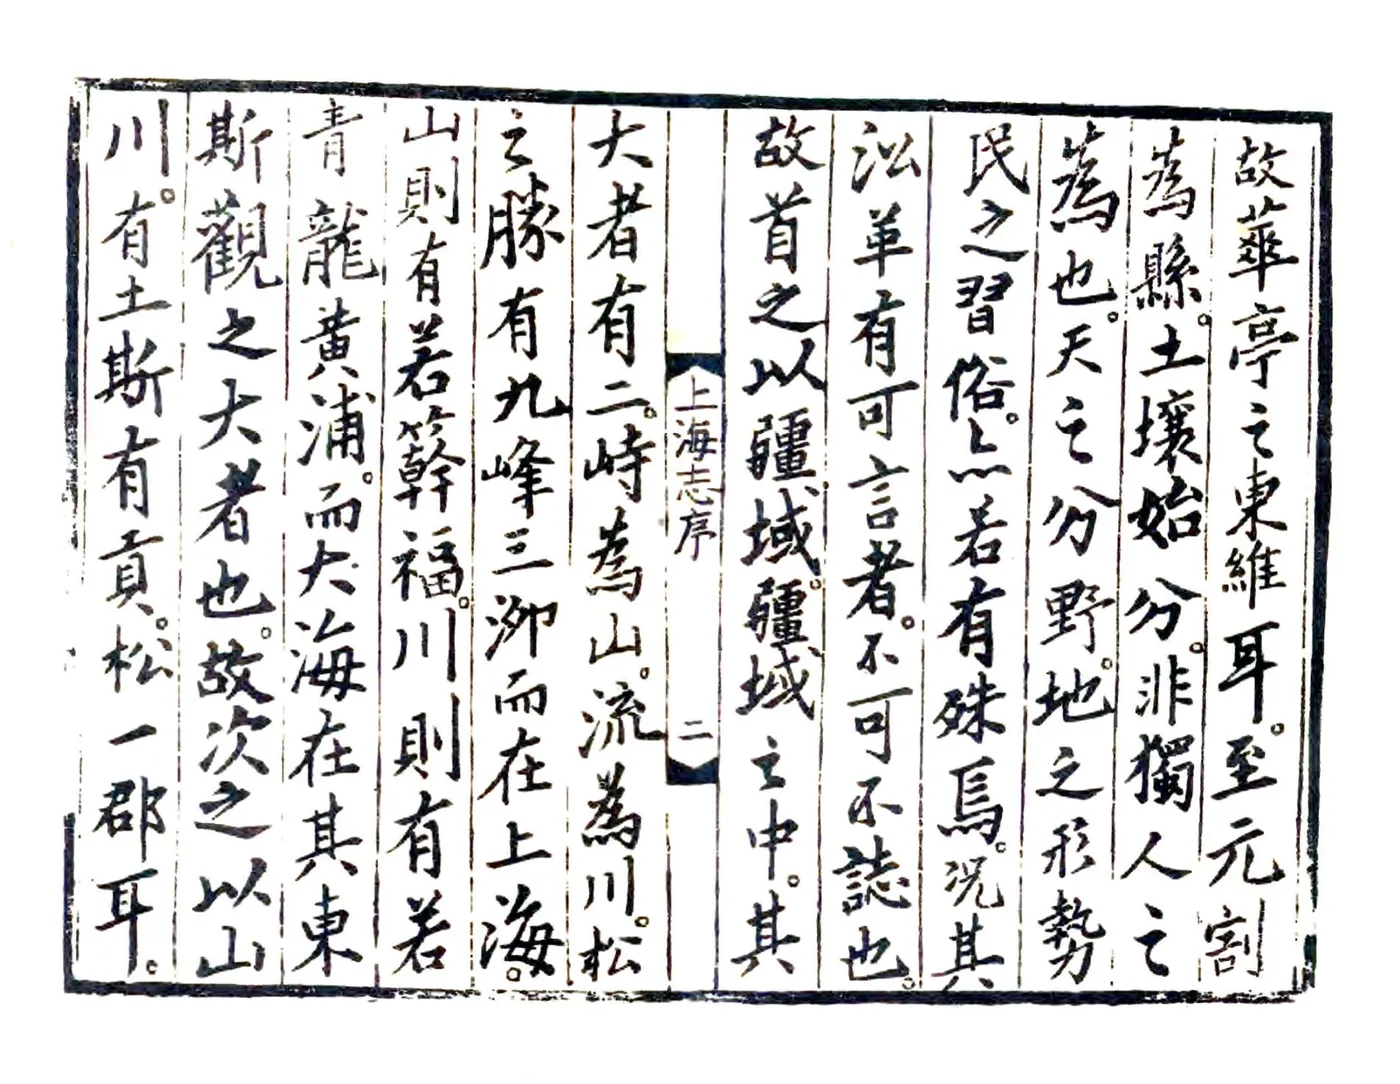 故華亭之東維耳。至元割
為縣。土壤始分。非獨人之
為也。天之分野。地之形勢
民之習俗。亦若有殊焉。況其
沿革有可言者。不可不誌也。
故首之以疆域。疆域之中。其
上海志序
二
大者有二。峙為山。流為川。松
之勝有九峰三泖而在上海。
山則有若簳福。川則有若
青龍黃浦。而大海在其東
斯觀之大者也。故次之以山
川。有土斯有貢。松一郡耳。